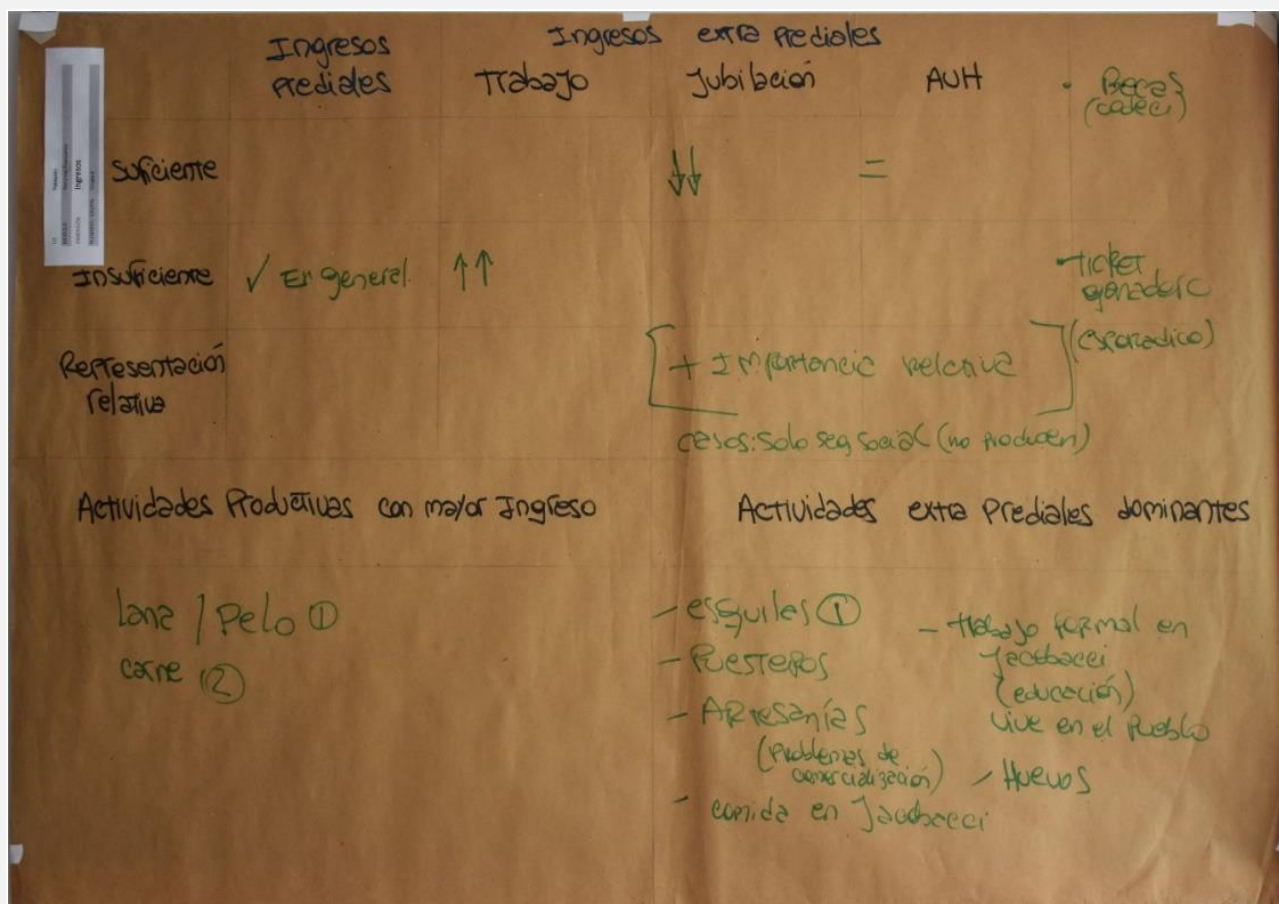 Ingresos prediales
Ingresos extra prediales
Trabajo
Jubilación
AUH
• Becas
Suficiente
↓↓
=
Insuficiente
✓ En general
↑↑
-Ticket
ganadero
(esporadico)
Representación
relativa
+ Importancia relativa
casos: solo seg social (no producen)
Actividades Productivas con mayor Ingreso
Actividades extra Prediales dominantes
lana / Pelo ①
carne ②
- esquiles ①
- Puesteros
- Artesanías
(Problemas de
comercialización)
- comida en Jacobacci
- trabajo formal en
Jacobacci
(educación)
vive en el Pueblo
- Huevos
Ingresos